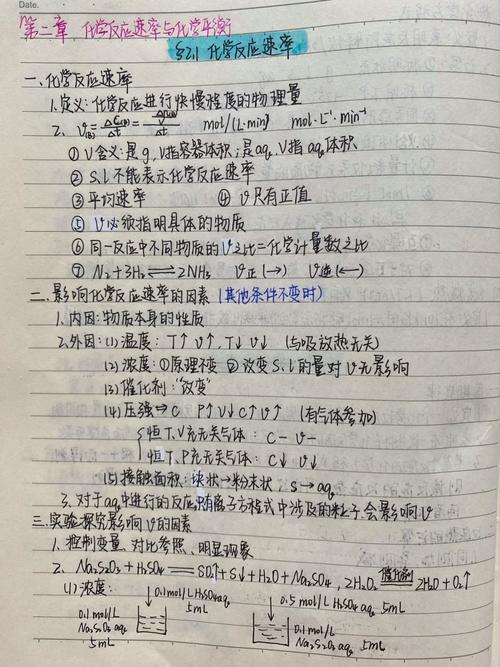 Date.
第二章 化学反应速率与化学平衡
§2.1 化学反应速率
一、化学反应速率
1.定义:化学反应进行快慢程度的物理量
2. v(B)=Δc(B)/Δt=(Δn(B)/V)/Δt mol/(L·min) mol·L⁻¹·min⁻¹
① V含义:是g,V指容器体积;是aq,V指aq体积
② S、l不能表示化学反应速率
③ 平均速率 ④ v只有正值
⑤ v必须指明具体的物质
⑥ 同一反应中不同物质的v之比=化学计量数之比
⑦ N₂+3H₂⇌2NH₃ v正(→) v逆(←)
二、影响化学反应速率的因素(其他条件不变时)
1.内因:物质本身的性质
2.外因:(1)温度: T↑v↑,T↓v↓ (与吸放热无关)
(2)浓度:①原理不变 ②改变S、l的量对v无影响
(3)催化剂:"改变"
(4)压强⇔C P↑V↓C↑v↑ (有气体参加)
恒T、V充无关气体: C- v-
恒T、P充无关气体: C↓v↓
(5)接触面积:块状→粉末状,S→aq
3.对于aq中进行的反应,只有离子方程式中涉及的粒子会影响v
三、实验探究影响v的因素
1.控制变量、对比参照、明显现象
2. Na₂S₂O₃+H₂SO₄══SO₂↑+S↓+H₂O+Na₂SO₄, 2H₂O₂ 催化剂══ 2H₂O+O₂↑
(1)浓度: ↓0.1mol/L H₂SO₄aq 5mL ↓0.5mol/L H₂SO₄aq 5mL
0.1mol/L Na₂S₂O₃ aq 5mL
0.1mol/L Na₂S₂O₃ aq 5mL